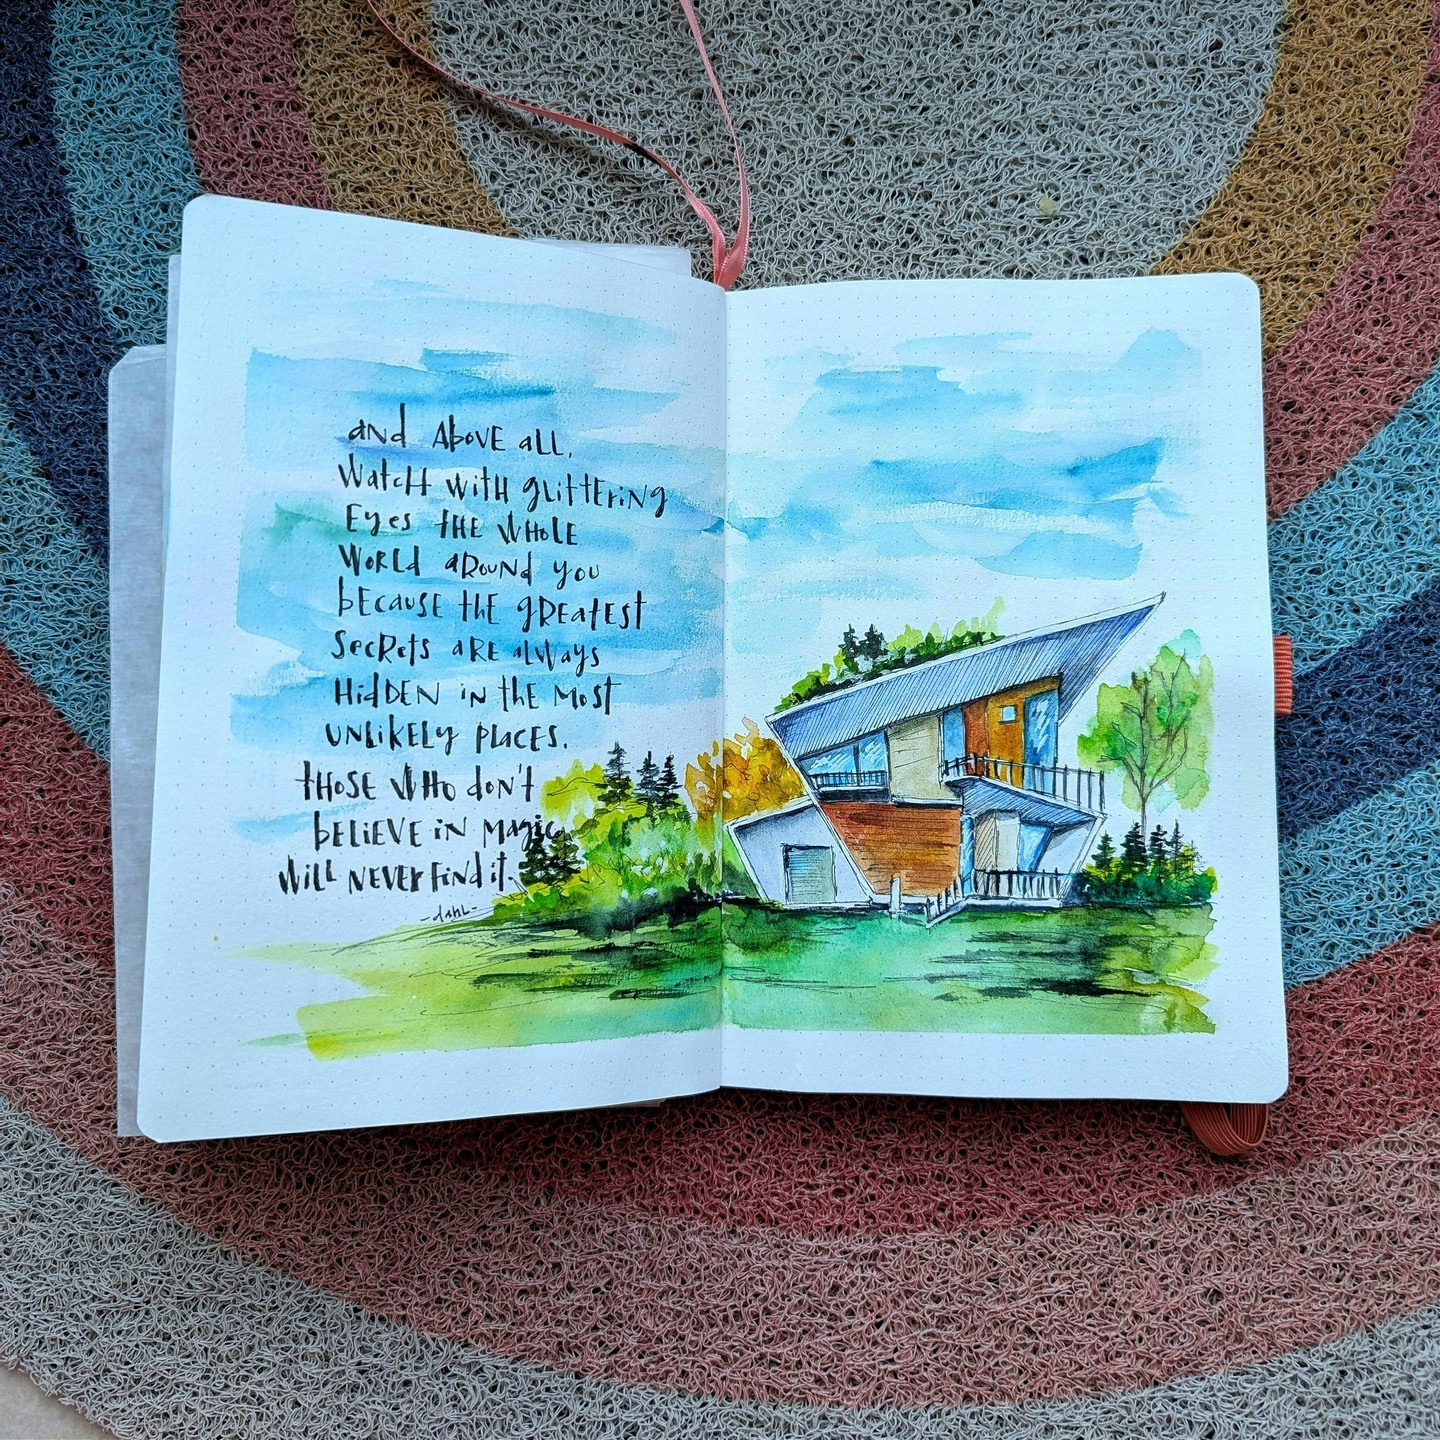 and above all,
watch with glittering
eyes the whole
world around you
because the greatest
secrets are always
hidden in the most
unlikely places.
those who don't
believe in magic
will never find it.
-dahl-